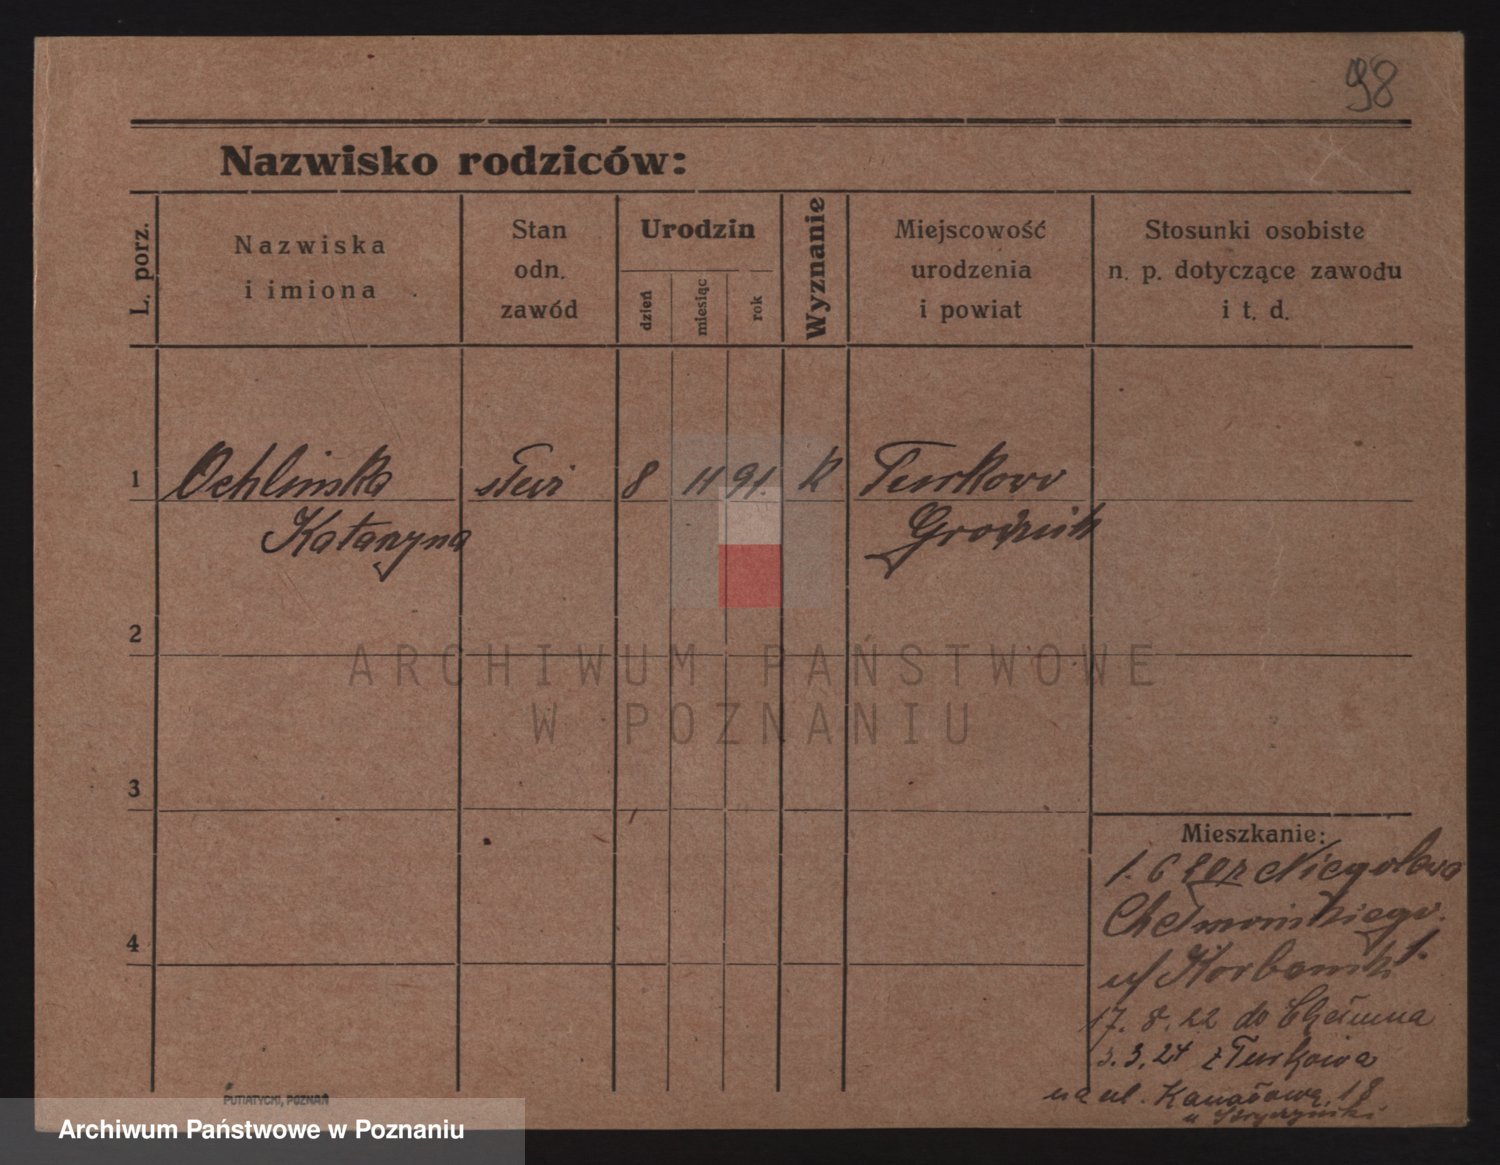 98
Nazwisko rodziców:
L. porz.
Nazwiska
i imiona
Stan
odn.
zawód
Urodzin
dzień
miesiąc
rok
Wyznanie
Miejscowość
urodzenia
i powiat
Stosunki osobiste
n. p. dotyczące zawodu
i t. d.
1 Ochlinska 8 11 91. K Turkowo
Katarzyna
2
ARCHIWUM PAŃSTWOWE
W POZNANIU
3
Mieszkanie:
1. 6 z Niegolewo
Chełmońskiego
4
17. 8. 22 do Chełmna
3. 3. 24 z Turkowa
na ul. Kanałową 18
PUTIATYCKI, POZNAŃ
Archiwum Państwowe w Poznaniu